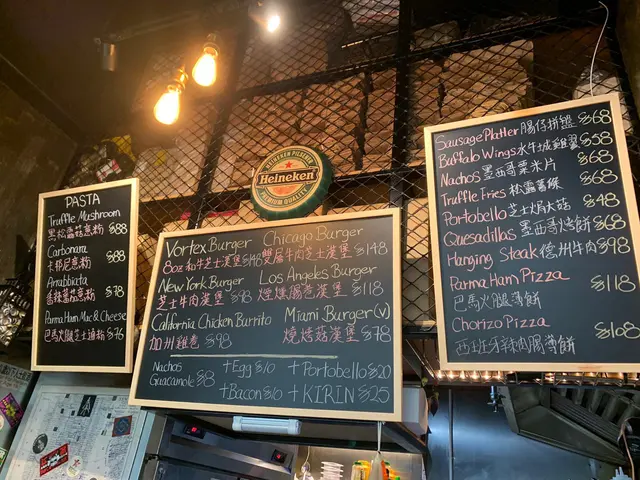 PASTA
Truffle Mushroom
黑松露菇意粉 $88
Carbonara
卡邦尼意粉 $88
Arrabbiata
香辣番茄意粉 $78
Parma Ham Mac & Cheese
巴馬火腿芝士通粉 $76
HEINEKEN PILSENER
Heineken
PREMIUM QUALITY
Vortex Burger
8oz 和牛芝士漢堡 $148
Chicago Burger
雙層牛肉芝士漢堡 $148
New York Burger
芝士牛肉漢堡 $98
Los Angeles Burger
煙燻腸卷漢堡 $118
California Chicken Burrito
加州雞卷 $98
Miami Burger (v)
燒烤菇漢堡 $78
Nachos
Guacamole $8
+Egg $10
+Portobello $20
+Bacon $10
+KIRIN $25
Sausage Platter 腸仔拼盤 $68
Buffalo Wings 水牛城雞翼 $58
Nachos 墨西哥粟米片 $68
Truffle Fries 松露薯條 $68
Portobello 芝士焗大菇 $48
Quesadillas 墨西哥烤餅 $68
Hanging Steak 德州牛肉 $98
Parma Ham Pizza
巴馬火腿薄餅 $118
Chorizo Pizza
西班牙辣肉腸薄餅 $108